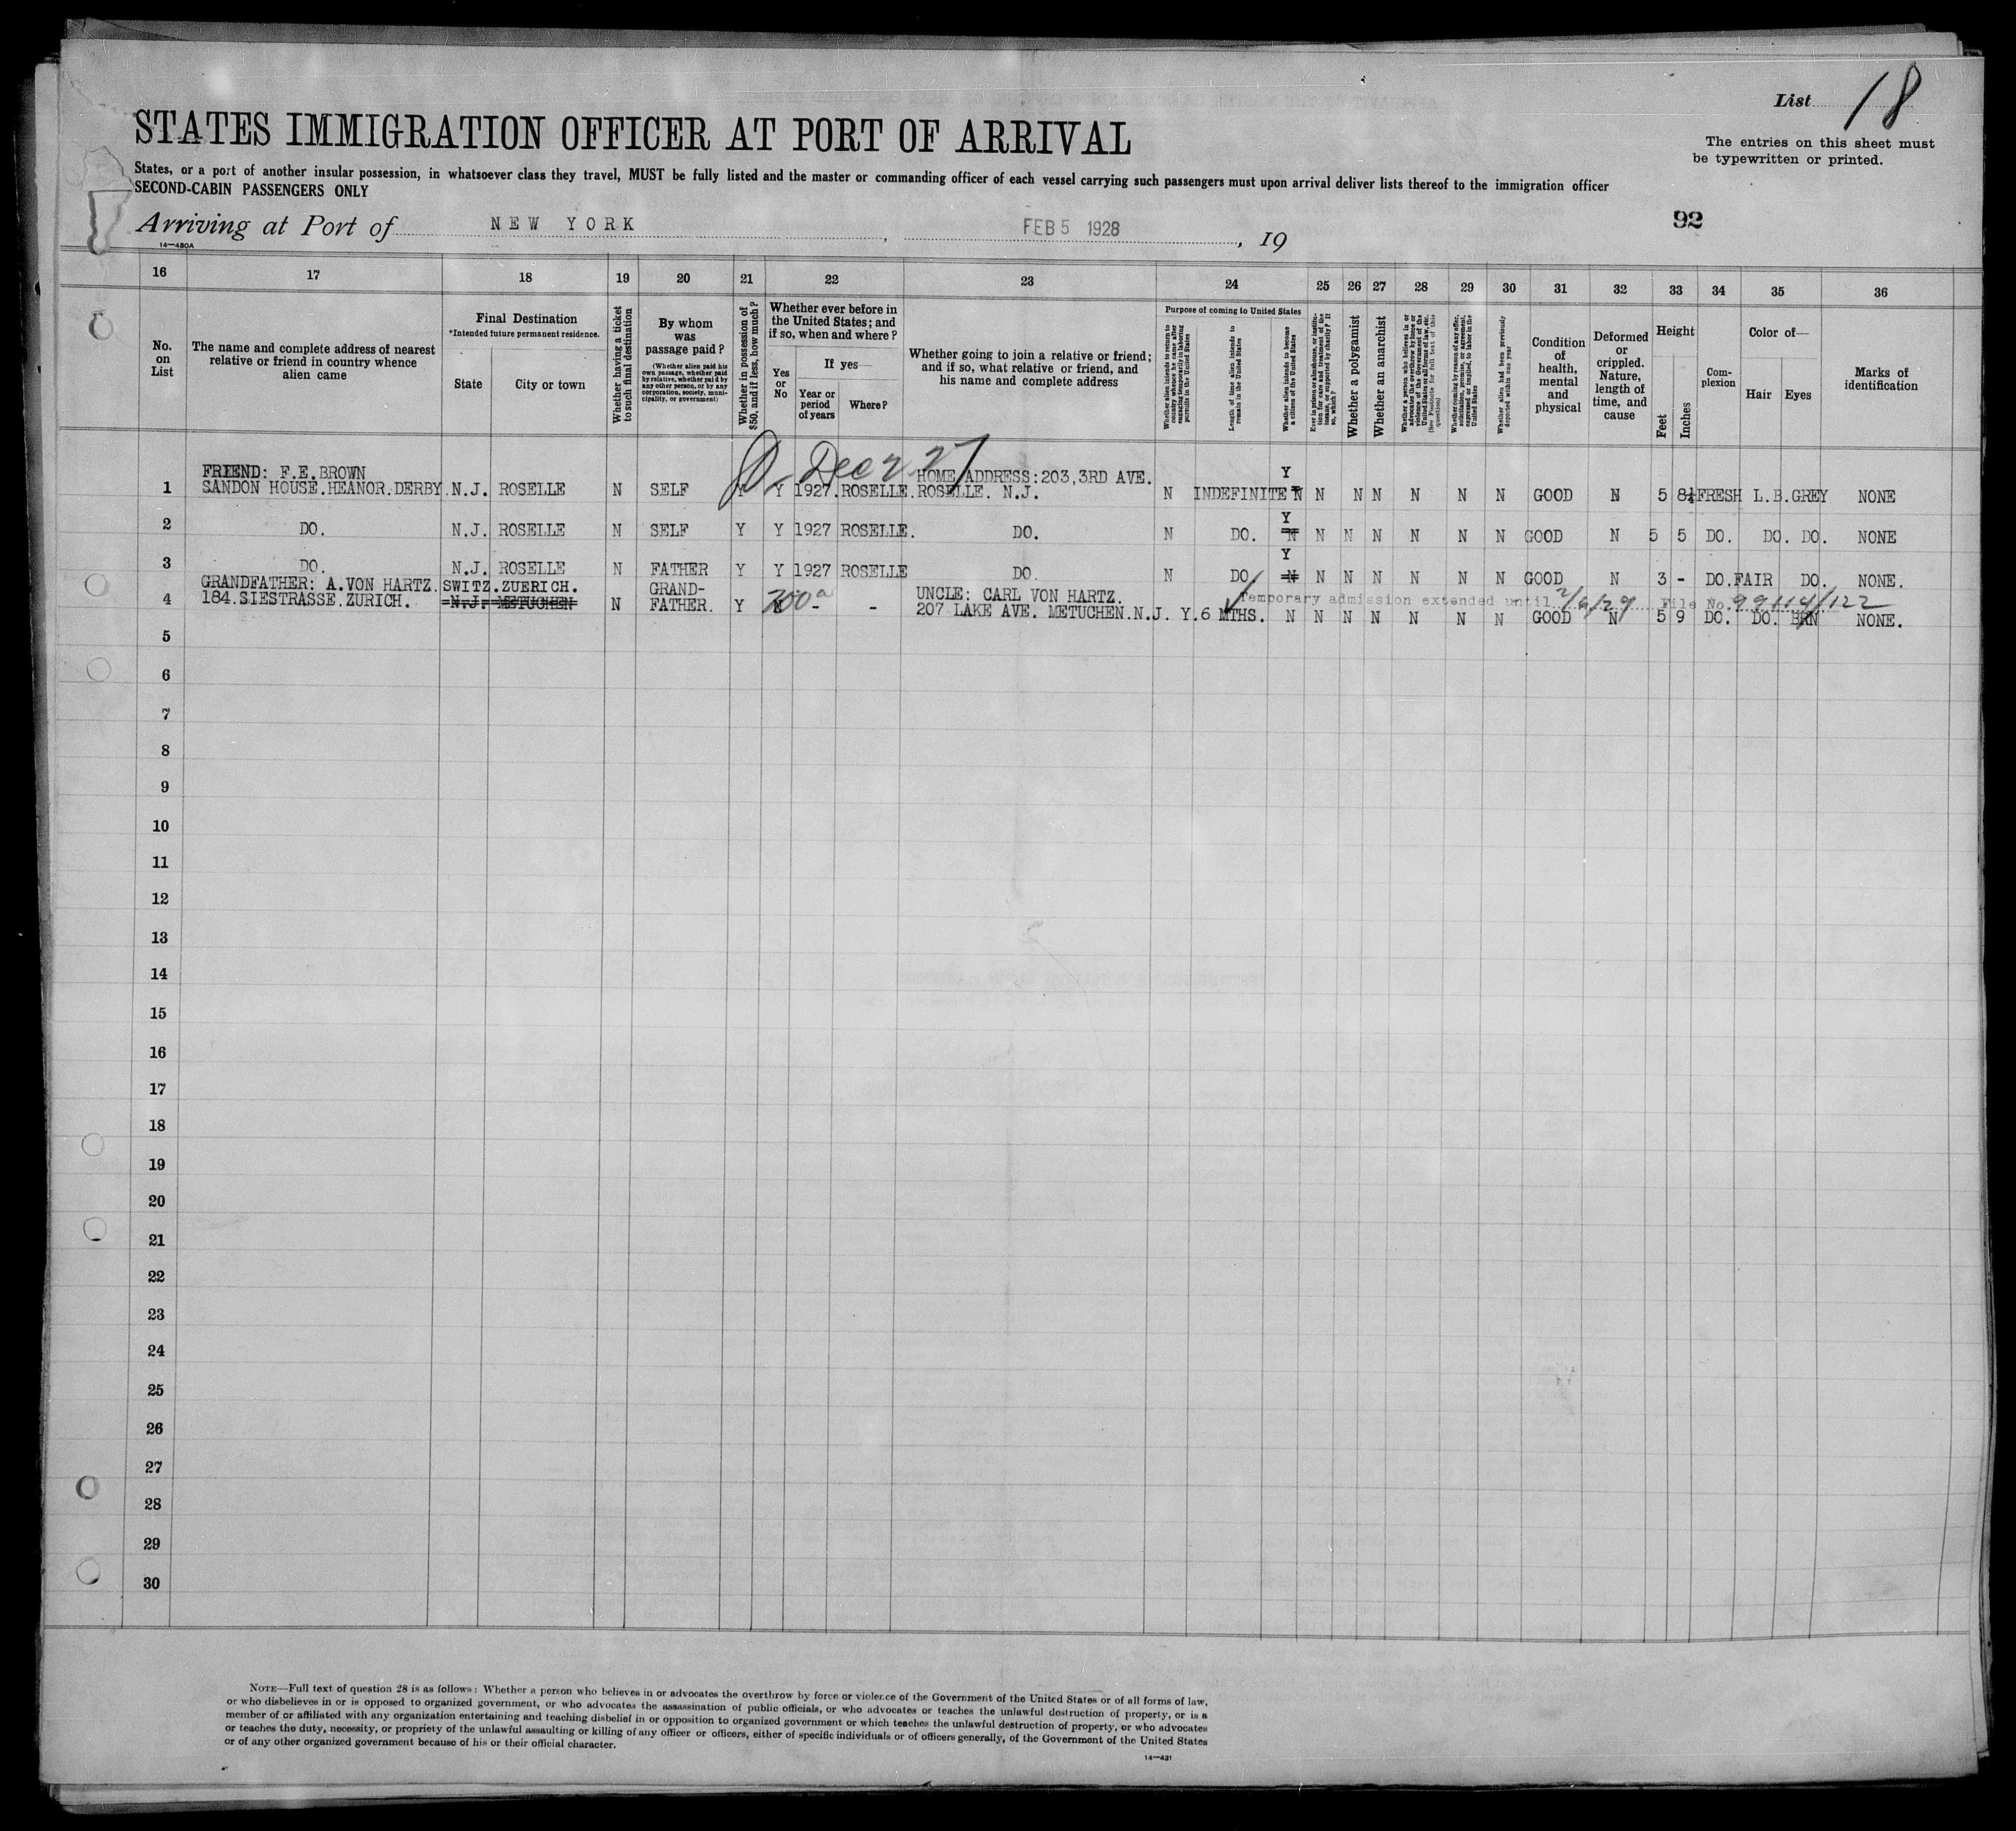 List 18
STATES IMMIGRATION OFFICER AT PORT OF ARRIVAL
The entries on this sheet must
be typewritten or printed.
States, or a port of another insular possession, in whatsoever class they travel, MUST be fully listed and the master or commanding officer of each vessel carrying such passengers must upon arrival deliver lists thereof to the immigration officer
SECOND-CABIN PASSENGERS ONLY
92
Arriving at Port of NEW YORK, FEB 5 1928, 19
14—480A
16 17 18 19 20 21 22 23 24 25 26 27 28 29 30 31 32 33 34 35 36
No. on List
The name and complete address of nearest relative or friend in country whence alien came
Final Destination
*Intended future permanent residence.
State
City or town
Whether having a ticket to such final destination
By whom was passage paid?
(Whether alien paid his own passage, whether paid by relative, whether paid by any other person, or by any corporation, society, municipality, or government)
Whether in possession of $50, and if less, how much?
Whether ever before in the United States; and if so, when and where?
Yes or No
If yes—
Year or period of years
Where?
Whether going to join a relative or friend; and if so, what relative or friend, and his name and complete address
Purpose of coming to United States
Whether alien intends to return to country whence he came after engaging temporarily in laboring pursuits in the United States
Length of time alien intends to remain in the United States
Whether alien intends to become a citizen of the United States
Ever in prison or almshouse, or institution for care and treatment of the insane, or supported by charity? If so, which?
Whether a polygamist
Whether an anarchist
Whether a person who believes in or advocates the overthrow by force or violence of the Government of the United States or all forms of law, etc. (See Footnote for full text of this question)
Whether coming by reason of any offer, solicitation, promise, or agreement, expressed or implied, to labor in the United States
Whether alien had been previously deported within one year
Condition of health, mental and physical
Deformed or crippled. Nature, length of time, and cause
Height
Feet
Inches
Complexion
Color of—
Hair
Eyes
Marks of identification
Dec 2 27
FRIEND: F.E.BROWN HOME ADDRESS:203,3RD AVE. Y
1 SANDON HOUSE.HEANOR.DERBY. N.J. ROSELLE N SELF Y Y 1927. ROSELLE. ROSELLE. N.J. N INDEFINITE N N N N N N N GOOD N 5 8½ FRESH L.B. GREY NONE
Y
2 DO. N.J. ROSELLE N SELF Y Y 1927 ROSELLE. DO. N DO. N N N N N N N GOOD N 5 5 DO. DO. DO. NONE
Y
3 DO. N.J. ROSELLE N FATHER Y Y 1927 ROSELLE DO. N DO. N N N N N N N GOOD N 3 - DO. FAIR DO. NONE.
GRANDFATHER: A.VON HARTZ. SWITZ.ZUERICH. GRAND- UNCLE: CARL VON HARTZ.
Temporary admission extended until 2/6/29 File No. 99114/122
4 184.SIESTRASSE.ZURICH. N.J. METUCHEN N FATHER. Y N - - 207 LAKE AVE. METUCHEN.N.J. Y. 6 MTHS. N N N N N N N GOOD N 5 9 DO. DO. BRN NONE.
5
6
7
8
9
10
11
12
13
14
15
16
17
18
19
20
21
22
23
24
25
26
27
28
29
30
NOTE—Full text of question 28 is as follows: Whether a person who believes in or advocates the overthrow by force or violence of the Government of the United States or of all forms of law,
or who disbelieves in or is opposed to organized government, or who advocates the assassination of public officials, or who advocates or teaches the unlawful destruction of property, or is a
member of or affiliated with any organization entertaining and teaching disbelief in or opposition to organized government or which teaches the unlawful destruction of property, or who advocates
or teaches the duty, necessity, or propriety of the unlawful assaulting or killing of any officer or officers, either of specific individuals or of officers generally, of the Government of the United States
or of any other organized government because of his or their official character.
14—431